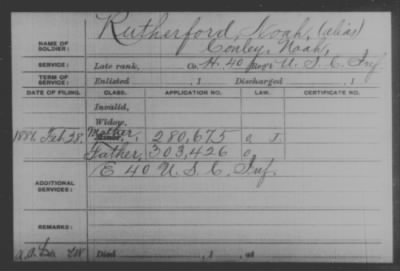 Rutherford, Noah, (alias)
NAME OF SOLDIER: Conley, Noah,
SERVICE: Late rank, Co. H. 40 Reg't U. S. C. Inf
TERM OF SERVICE: Enlisted , 1 Discharged , 1
DATE OF FILING. CLASS. APPLICATION NO. LAW. CERTIFICATE NO.
Invalid,
Widow,
1886 Feb 28. Mother, 280,675
Father, 303,426
ADDITIONAL SERVICES: E 40 U. S. C. Inf.
REMARKS:
Died , 1 , at